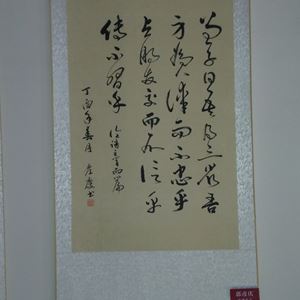 曾子曰吾日三省吾
身為人謀而不忠乎
與朋友交而不信乎
傳不習乎
論語學而篇
丁酉年春月